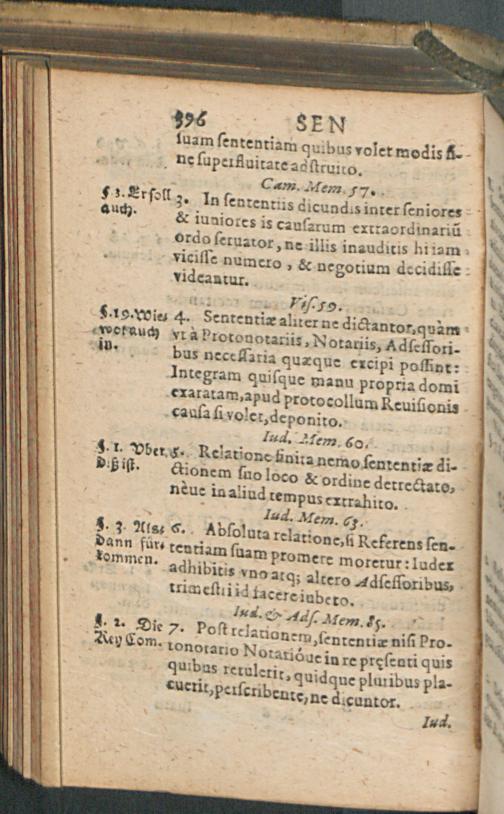 396 SEN
suam sententiam quibus volet modis si-
nę superfluitate adstruito.
Cam. Mem. 57.
§ 3. Er soll auch.
3. In sententiis dicundis inter seniores
& iuniores is causarum extraordinariū
ordo seruator, ne illis inauditis hi iam
vicisse numero, & negotium decidisse
videantur.
Vis. 59.
§. 19. Wie wol auch in.
4. Sententiæ aliter ne dictantor, quàm
vt à Protonotariis, Notariis, Adsessori-
bus necessaria quæque excipi possint:
Integram quisque manu propria domi
exaratam, apud protocollum Reuisionis
causa si volet, deponito.
Iud. Mem. 60.
§. 1. Vber diß ist.
5. Relatione finita nemo sententiæ di-
ctionem suo loco & ordine detrectato,
nève in aliud tempus extrahito.
Iud. Mem. 63.
§. 3. Als dann für kommen.
6. Absoluta relatione, si Referens sen-
tentiam suam promere moretur: Iudex
adhibitis vno atq; altero Adsessoribus,
trimestri id facere iubeto.
Iud. & Ads. Mem. 85.
§. 2. Die Key Com.
7. Post relationem, sententiæ nisi Pro-
tonotario Notarióve in re pręsenti quis
quibus retulerit, quidque pluribus pla-
cuerit, perscribente, ne dicuntor.
Iud.